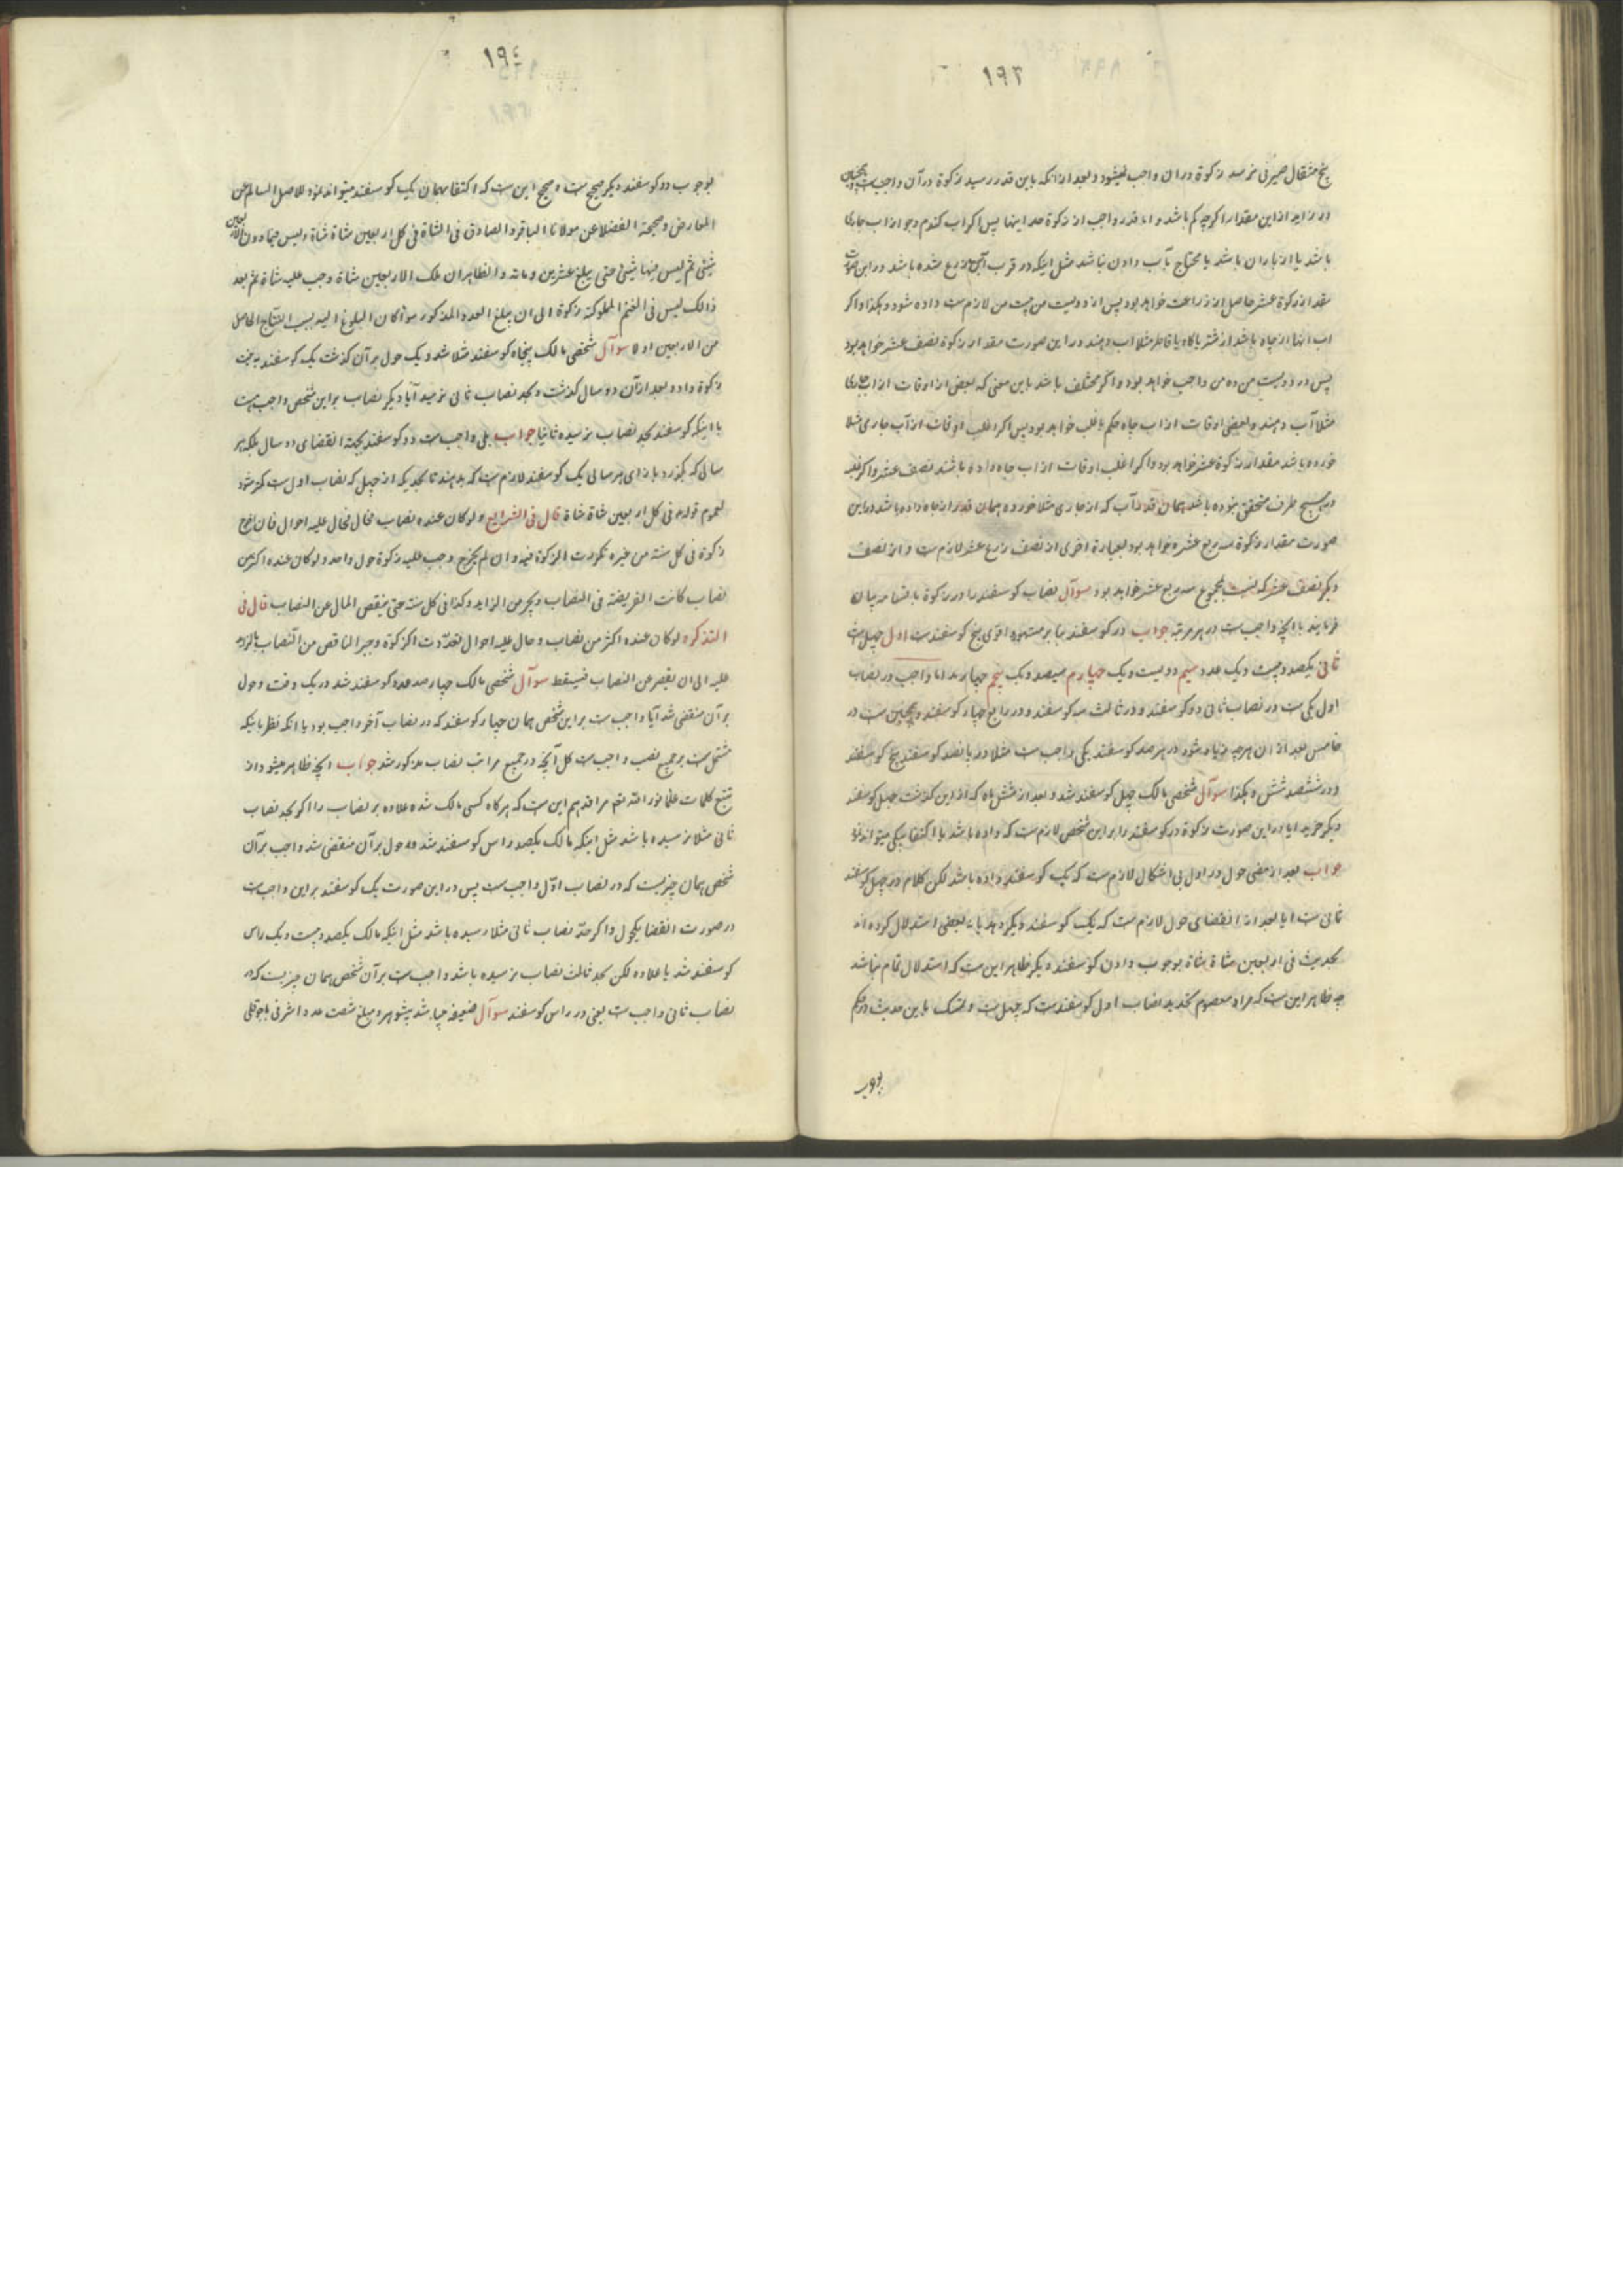 ۱۹۳
پنج مثقال صیرفی نرسد زکوة در ان واجب نمیشود و بعد از انکه باین قدر رسید زکوة در آن واجب است همچنین
در زاید از این مقدار اکرچه کم باشد و اما قدر واجب از زکوة حد اینها پس اکر اب کندم و جو از اب جاری
باشد یا از باران باشد یا محتاج بآب دادن نباشد مثل اینکه در قرب آب زرع شده باشد در این صورت
مقدار زکوة عشر حاصل از زراعت خواهد بود پس از دویست من بیست من لازم است داده شود و هکذا و اکر
اب انها از چاه باشد از شتر یا کاو یا قاطر مثلا اب دهند در این صورت مقدار زکوة نصف عشر خواهد بود
پس در دویست من ده من واجب خواهد بود و اکر مختلف باشد باین معنی که بعض از اوقات از اب جاری
مثلا آب دهند و بعضی اوقات از اب چاه حکم باغلب خواهد بود پس اکر اغلب اوقات از آب جاری مثلا
خورده باشد مقدار زکوة عشر خواهد بود و اکر اغلب اوقات از اب چاه داده باشند نصف عشر و اکر غلبه
در هیچ طرف متحقق نبوده باشد همان قدر آب که از جاری مثلا خورده همان قدر از چاه داده باشد در این
صورت مقدار زکوة سه ربع عشر خواهد بود بعبارة اخری از نصف زرع عشر لازم است و از نصف
دیکر نصف عشر که نسبت بمجموع سه ربع عشر خواهد بود سوآل نصاب کوسفند را در زکوة باقسامه بیان
فرمایند با انچه واجب است در هر مرتبه جواب در کوسفند بنا بر مشهور اقوی پنج کوسفند است اول چهل است
ثانی یکصد و بیست و یک عدد سیم دویست و یک چهارم سیصد و یک پنجم چهار صد اما واجب در نصاب
اول یکی است در نصاب ثانی دو کوسفند و در ثالث سه کوسفند و در رابع چهار کوسفند و همچنین است در
خامس بعد از ان هرچه زیاد شود در هر صد کوسفند یکی واجب است مثلا در پانصد کوسفند پنج کوسفند
و در ششصد شش و هکذا سوآل شخصی مالک چهل کوسفند شد و بعد از شش ماه که از این کذشت چهل کوسفند
دیکر خرید ایا در این صورت زکوة دو کوسفند را بر این شخص لازم است که داده باشد یا اکتفا بیکی میتواند نمود
جواب بعد از مضی حول در اول بی اشکال لازم است که یک کوسفند داده باشد لکن کلام در چهل کوسفند
ثانی است ایا بعد از انقضای حول لازم است که یک کوسفند دیکر دهد یا نه بعضی استدلال کرده اند
بحدیث فی اربعین شاة شاة بوجوب دادن کوسفند دیکر ظاهر این است که استدلال تمام نباشد
چه ظاهر این است که مراد معصوم تحدید نصاب اول کوسفند است که چهل است و تمسک باین حدیث در حکم
بوجوب
۱۹٤
بوجوب دو کوسفند دیکر صحیح است و صحیح این است که اکتفا بهمان یک کوسفند میتواند نمود للاصل السالم عن
المعارض و صحیحة الفضلا عن مولانا الباقر و الصادق فی الشاة فی کل اربعین شاة شاة و لیس فیما دون الاربعین
شیئ ثم لیس فیها شیئ حتی یبلغ عشرین و مائة و الظاهر ان ملک الاربعین شاة وجب علیه شاة ثم بعد
ذالک لیس فی الغنم المملوکة زکوة الی ان یبلغ العدد المذکور سوآ کان البلوغ الیه بسبب النتاج الحاصل
من الاربعین اولا سوآل شخصی مالک پنجاه کوسفند مثلا شد و یک حول بر آن کذشت یک کوسفند بجهت
زکوة داد و بعد از آن دو سال کذشت و بحد نصاب ثانی نرسید آیا دیکر نصاب بر این شخص واجب است
با اینکه کوسفند بحد نصاب نرسیده ثانیا جواب بلی واجب است دو کوسفند بجهة انقضای دو سال بلکه هر
سالی که بکذرد بازای هر سالی یک کوسفند لازم است که بدهند تا بحدیکه از چهل که نصاب اول است کمتر شود
لعموم قوله فی کل اربعین شاة شاة قال فی الشرایع و لو کان عنده نصاب فحال علیه احوال فان اخرج
زکوة فی کل سنة من غیره تکررت الزکوة فیه و ان لم یخرج وجب علیه زکوة حول واحد و لو کان عنده اکثر من
نصاب کانت الفریضة فی النصاب و یجبر من الزاید و کذا فی کل سنة حتی ینقص المال عن النصاب قال فی
التذکره لو کان عنده اکثر من نصاب و حال علیه احوال تعدّدت الزکوة و جبر الناقص من النصاب بالزاید
علیه الی ان یقصر عن النصاب فیسقط سوآل شخصی مالک چهار صد عدد کوسفند شد در یک وقت و حول
بر آن منقضی شد آیا واجب است بر این شخص همان چهار کوسفند که در نصاب آخر واجب بود یا انکه نظر باینکه
مشتمل است بر جمیع نصب واجب است کل آنچه در جمیع مراتب نصاب مذکور شد جواب انچه ظاهر میشود از
تتبع کلمات علما نور الله تعم مراقدهم این است که هرکاه کسی مالک شده علاوه بر نصاب را اکر بحد نصاب
ثانی مثلا نرسیده باشد مثل اینکه مالک یکصد راس کوسفند شد و حول بر آن منقضی شد واجب بر آن
شخص همان چیزیست که در نصاب اوّل واجب است پس در این صورت یک کوسفند بر این واجب است
در صورت انقضا یکحول و اکر حدّ نصاب ثانی مثلا رسیده باشد مثل اینکه مالک یکصد و بیست و یک راس
کوسفند شد یا علاوه لکن بحد ثالث نصاب نرسیده باشد واجب است بر آن شخص همان چیزیست که در
نصاب ثانی واجب است یعنی دو راس کوسفند سوآل ضعیفه حیا شد بشوهر و مبلغ شصت عدد اشرفی باجوقلی